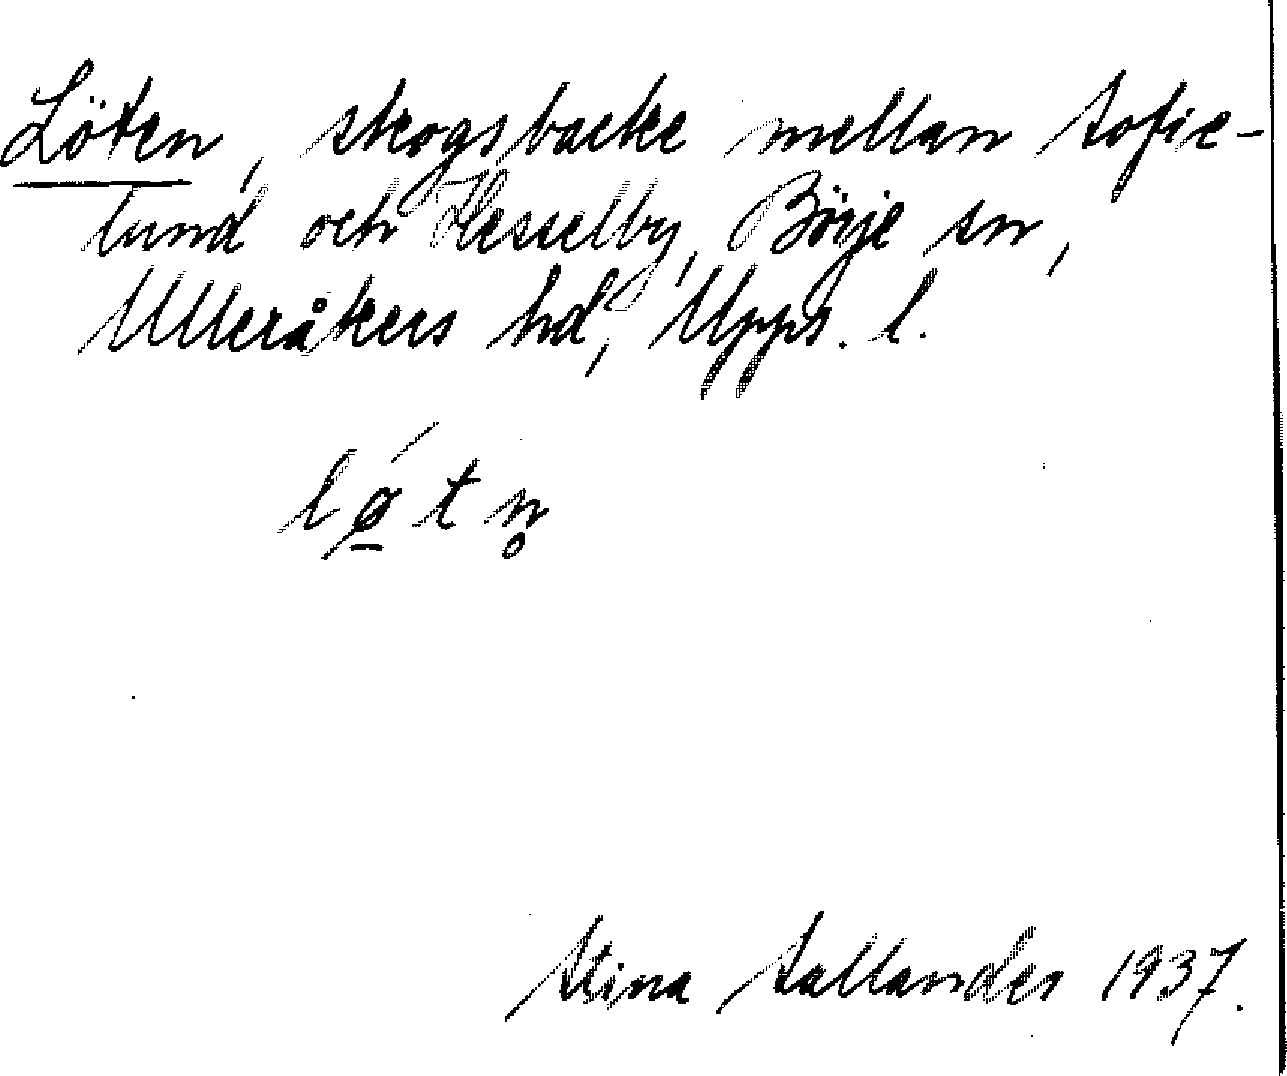 Löten, skogsbacke mellan Sofie-
lund och Hesselby, Börje sn,
Ulleråkers hd, Upps. l.
lǿ̱tn̥
Stina Sallander 1937.